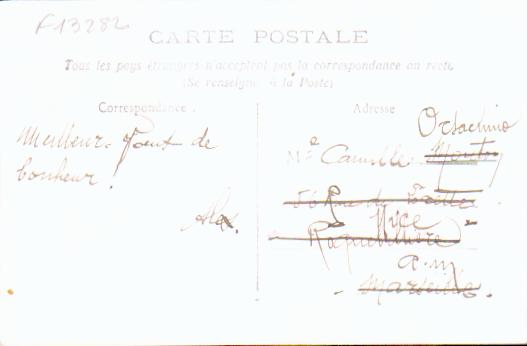 F13282
CARTE POSTALE
Tous les pays étrangers n'acceptent pas la correspondance au recto.
(Se renseigner à la Poste)
Correspondance
Adresse
Meilleur
de
bonheur!
Alex.
Mle Camille
Nice
Roquebillière
a.m.
Marseille.